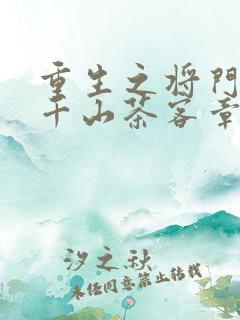 重生之将门
千山茶客章
汐之秋
未经同意禁止转载